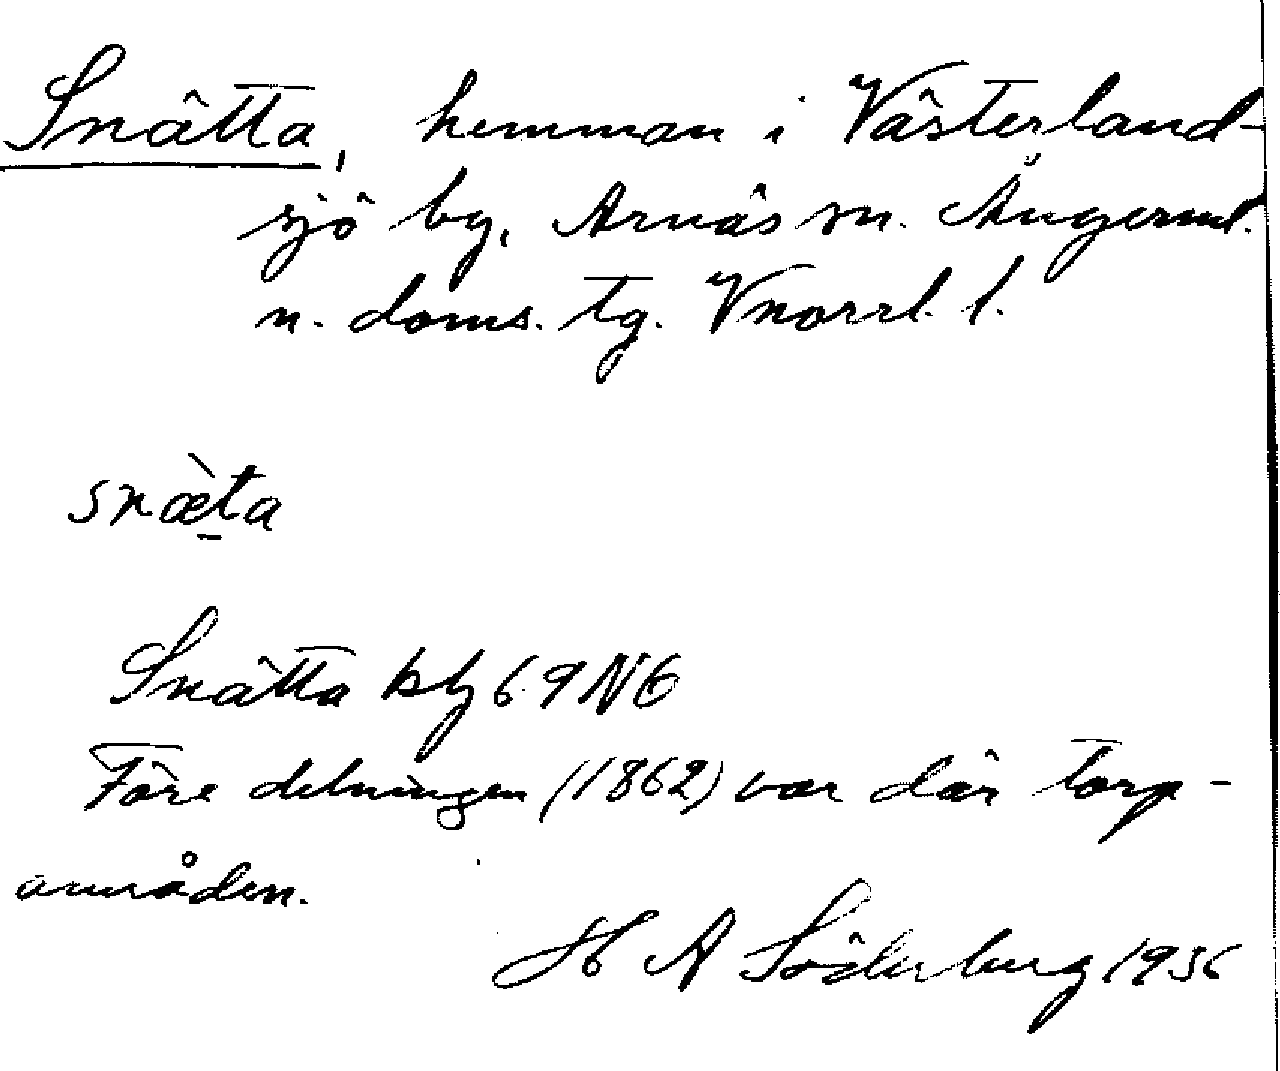 Snätta, hemman i Västerland-
sjö by, Arnäs sn. Ångerml.
n. doms. tg. Vnorrl. l.
snæ̀ta
Snätta kbl 69 NO
Före delningen (1862) var där torp-
områden.
H A Söderberg 1936